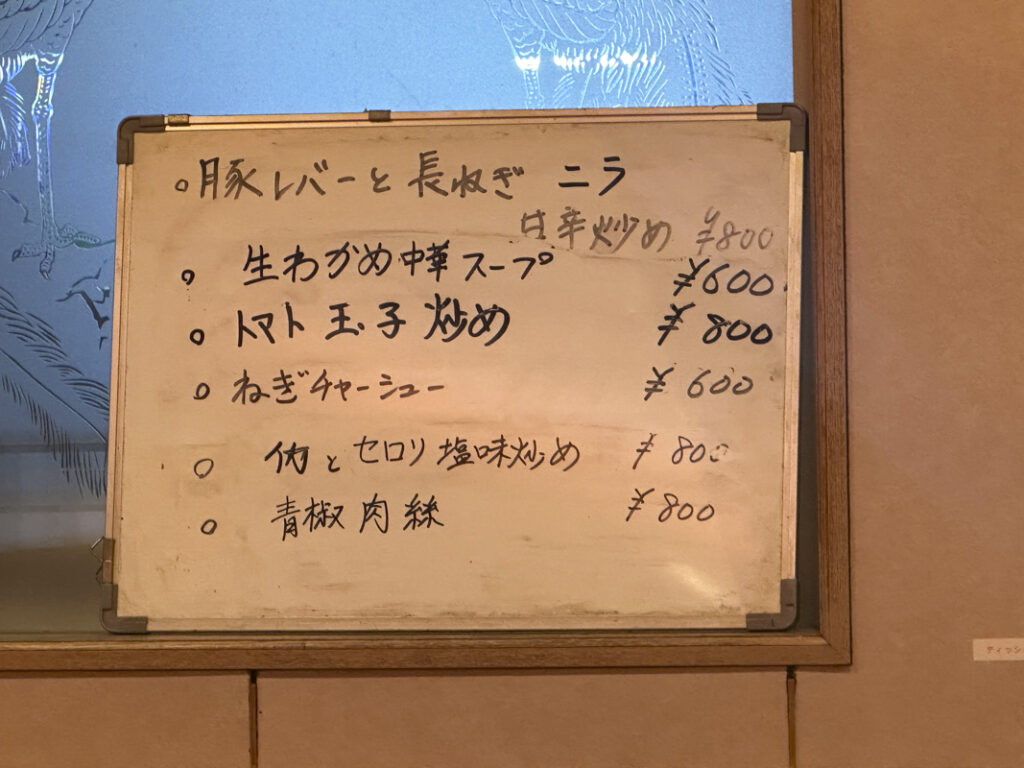 ○豚レバーと長ねぎ ニラ
甘辛炒め ¥800
○ 生わかめ中華スープ ¥600
○ トマト玉子炒め ¥800
○ ねぎチャーシュー ¥600
○ とセロリ塩味炒め ¥800
○ 青椒肉絲 ¥800
ティッシ